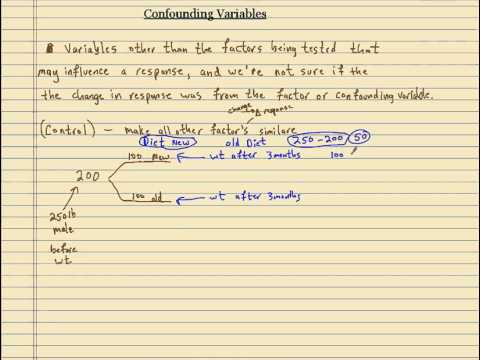 Confounding Variables
Variables other than the factors being tested that
may influence a response, and we're not sure if the
the change in response was from the factor or confounding variable.
change
response
(Control) - make all other factor's similare
Diet New old Diet 250-200 50
100 New wt after 3 months 100
200
100 old wt after 3 months
250lb
male
before
wt